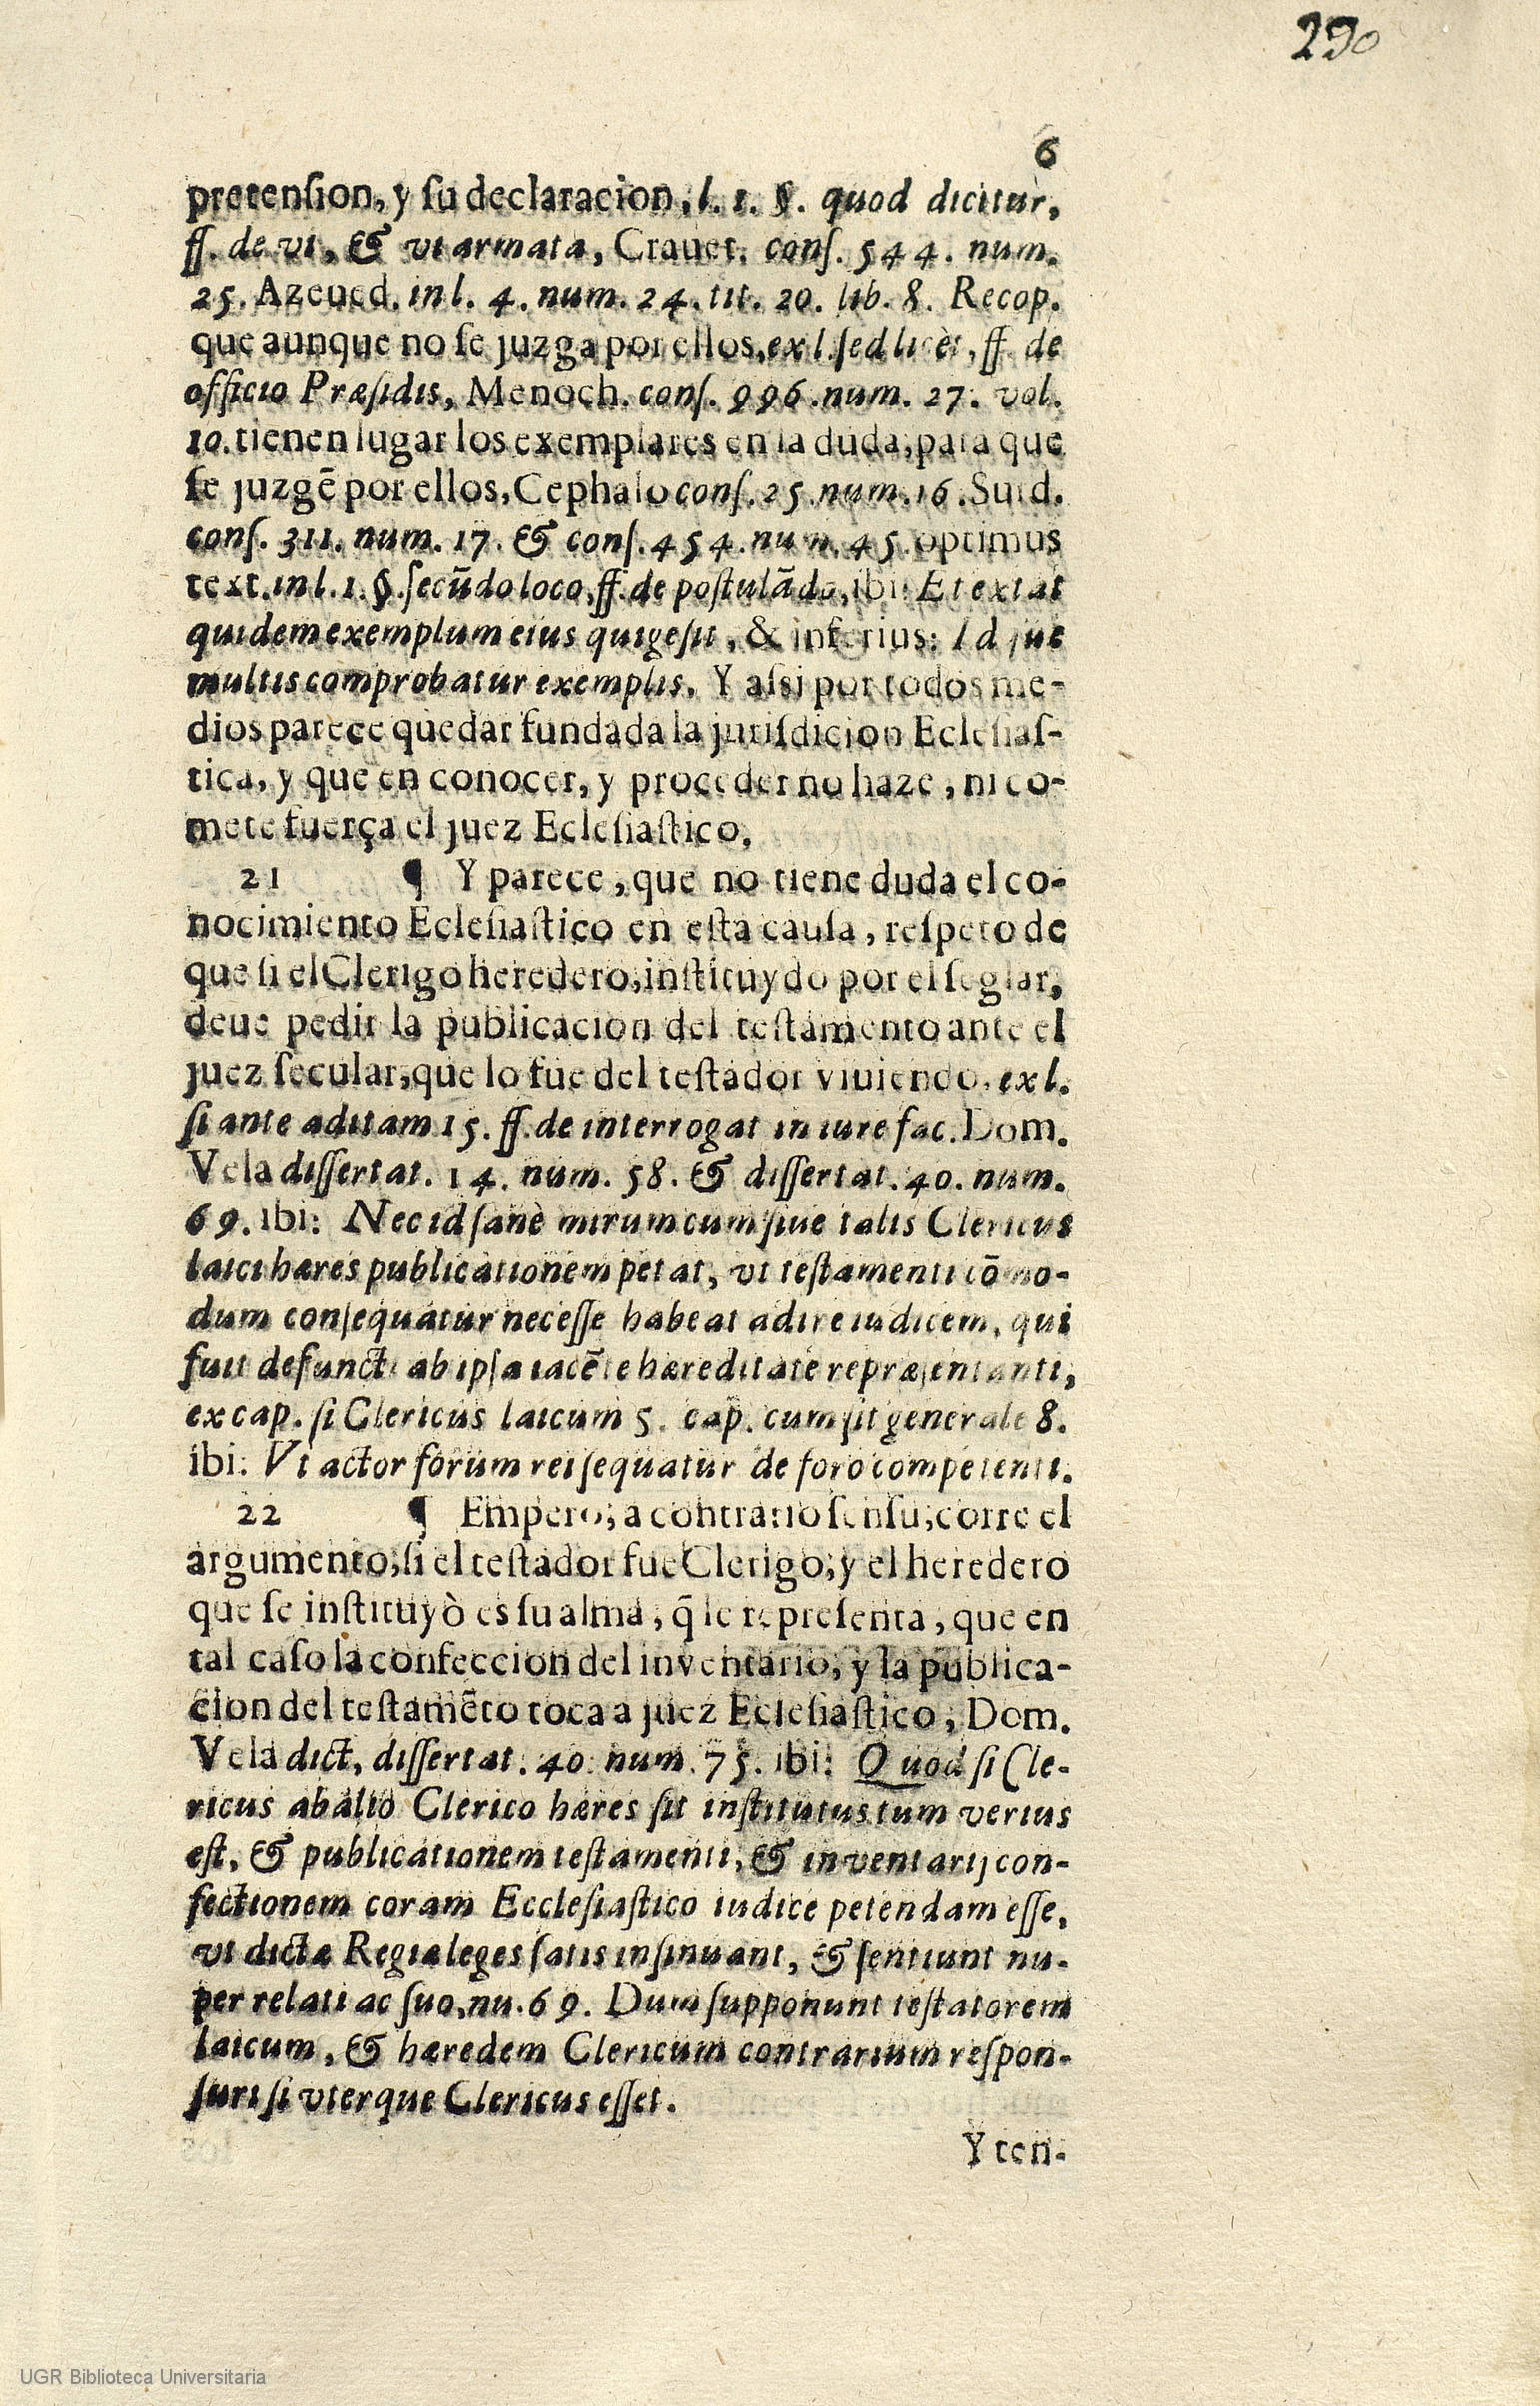 290
6
pretenſion, y ſu declaracion, l. 1. §. quod dicitur,
ff. de vi, & vi armata, Crauet. conſ. 544. num.
25. Azeued. in l. 4. num. 24. tit. 20. lib. 8. Recop.
que aunque no ſe juzga por ellos, ex l. ſed licèt, ff. de
officio Præſidis, Menoch. conſ. 996. num. 27. vol.
10. tienen lugar los exemplares en la duda, para que
ſe juzgē por ellos, Cephalo conſ. 25. num. 16. Surd.
conſ. 311. num. 17. & conſ. 454. num. 45. optimus
text. in l. 1. §. ſecūdo loco, ff. de poſtulādo, ibi: Et extat
quidem exemplum eius qui geſit, & inferius: Id que
multis comprobatur exemplis. Y aſsi por todos me-
dios parece quedar fundada la juriſdicion Ecleſiaſ-
tica, y que en conocer, y proceder no haze, ni co-
mete fuerça el juez Ecleſiaſtico.
21 ¶ Y parece, que no tiene duda el co-
nocimiento Ecleſiaſtico en eſta cauſa, reſpeto de
que ſi el Clerigo heredero, inſtituydo por el ſeglar,
deue pedir la publicacion del teſtamento ante el
juez ſecular, que lo fue del teſtador viuiendo, ex l.
ſi ante aditam 15. ff. de interrogat in iure fac. Dom.
Vela diſſertat. 14. num. 58. & diſſertat. 40. num.
69. ibi: Nec id ſanè mirum cum ſiue talis Clericus
laici hæres publicationem petat, vt teſtamenti cōmo-
dum conſequatur neceſſe habeat adire iudicem, qui
fuit defuncti ab ipſa iacēte hæreditate repræſentanti,
ex cap. ſi Clericus laicum 5. cap. cum ſit generale 8.
ibi: Vt actor forum rei ſequatur de foro competenti.
22 ¶ Empero, a contrario ſenſu, corre el
argumento, ſi el teſtador fue Clerigo, y el heredero
que ſe inſtituyò es ſu alma, q̄ le repreſenta, que en
tal caſo la confeccion del inventario, y la publica-
cion del teſtamēto toca a juez Ecleſiaſtico, Dom.
Vela dict, diſſertat. 40. num. 75. ibi: Quod ſi Cle-
ricus ab alio Clerico hæres ſit inſtitutus tum verius
eſt, & publicationem teſtamenti, & inventarij con-
fectionem coram Eccleſiaſtico iudice petendam eſſe,
vt dictæ Regiæ leges ſatis inſinuant, & ſentiunt nu-
per relati ac ſuo, nu. 69. Dum ſupponunt teſtatorem
laicum, & hæredem Clericum contrarium reſpon-
ſuri ſi vterque Clericus eſſet.
Y ten-
UGR Biblioteca Universitaria